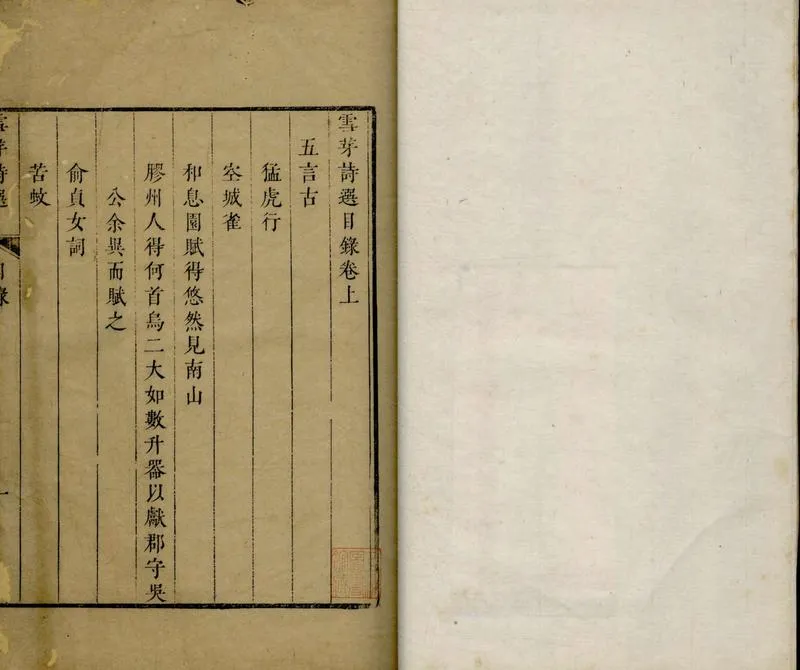 雪芽詩選目錄卷上
五言古
猛虎行
空城雀
和息園賦得悠然見南山
膠州人得何首烏二大如數升器以獻郡守吳
公余異而賦之
俞貞女詞
苦蚊
雪芽詩選
目錄
一